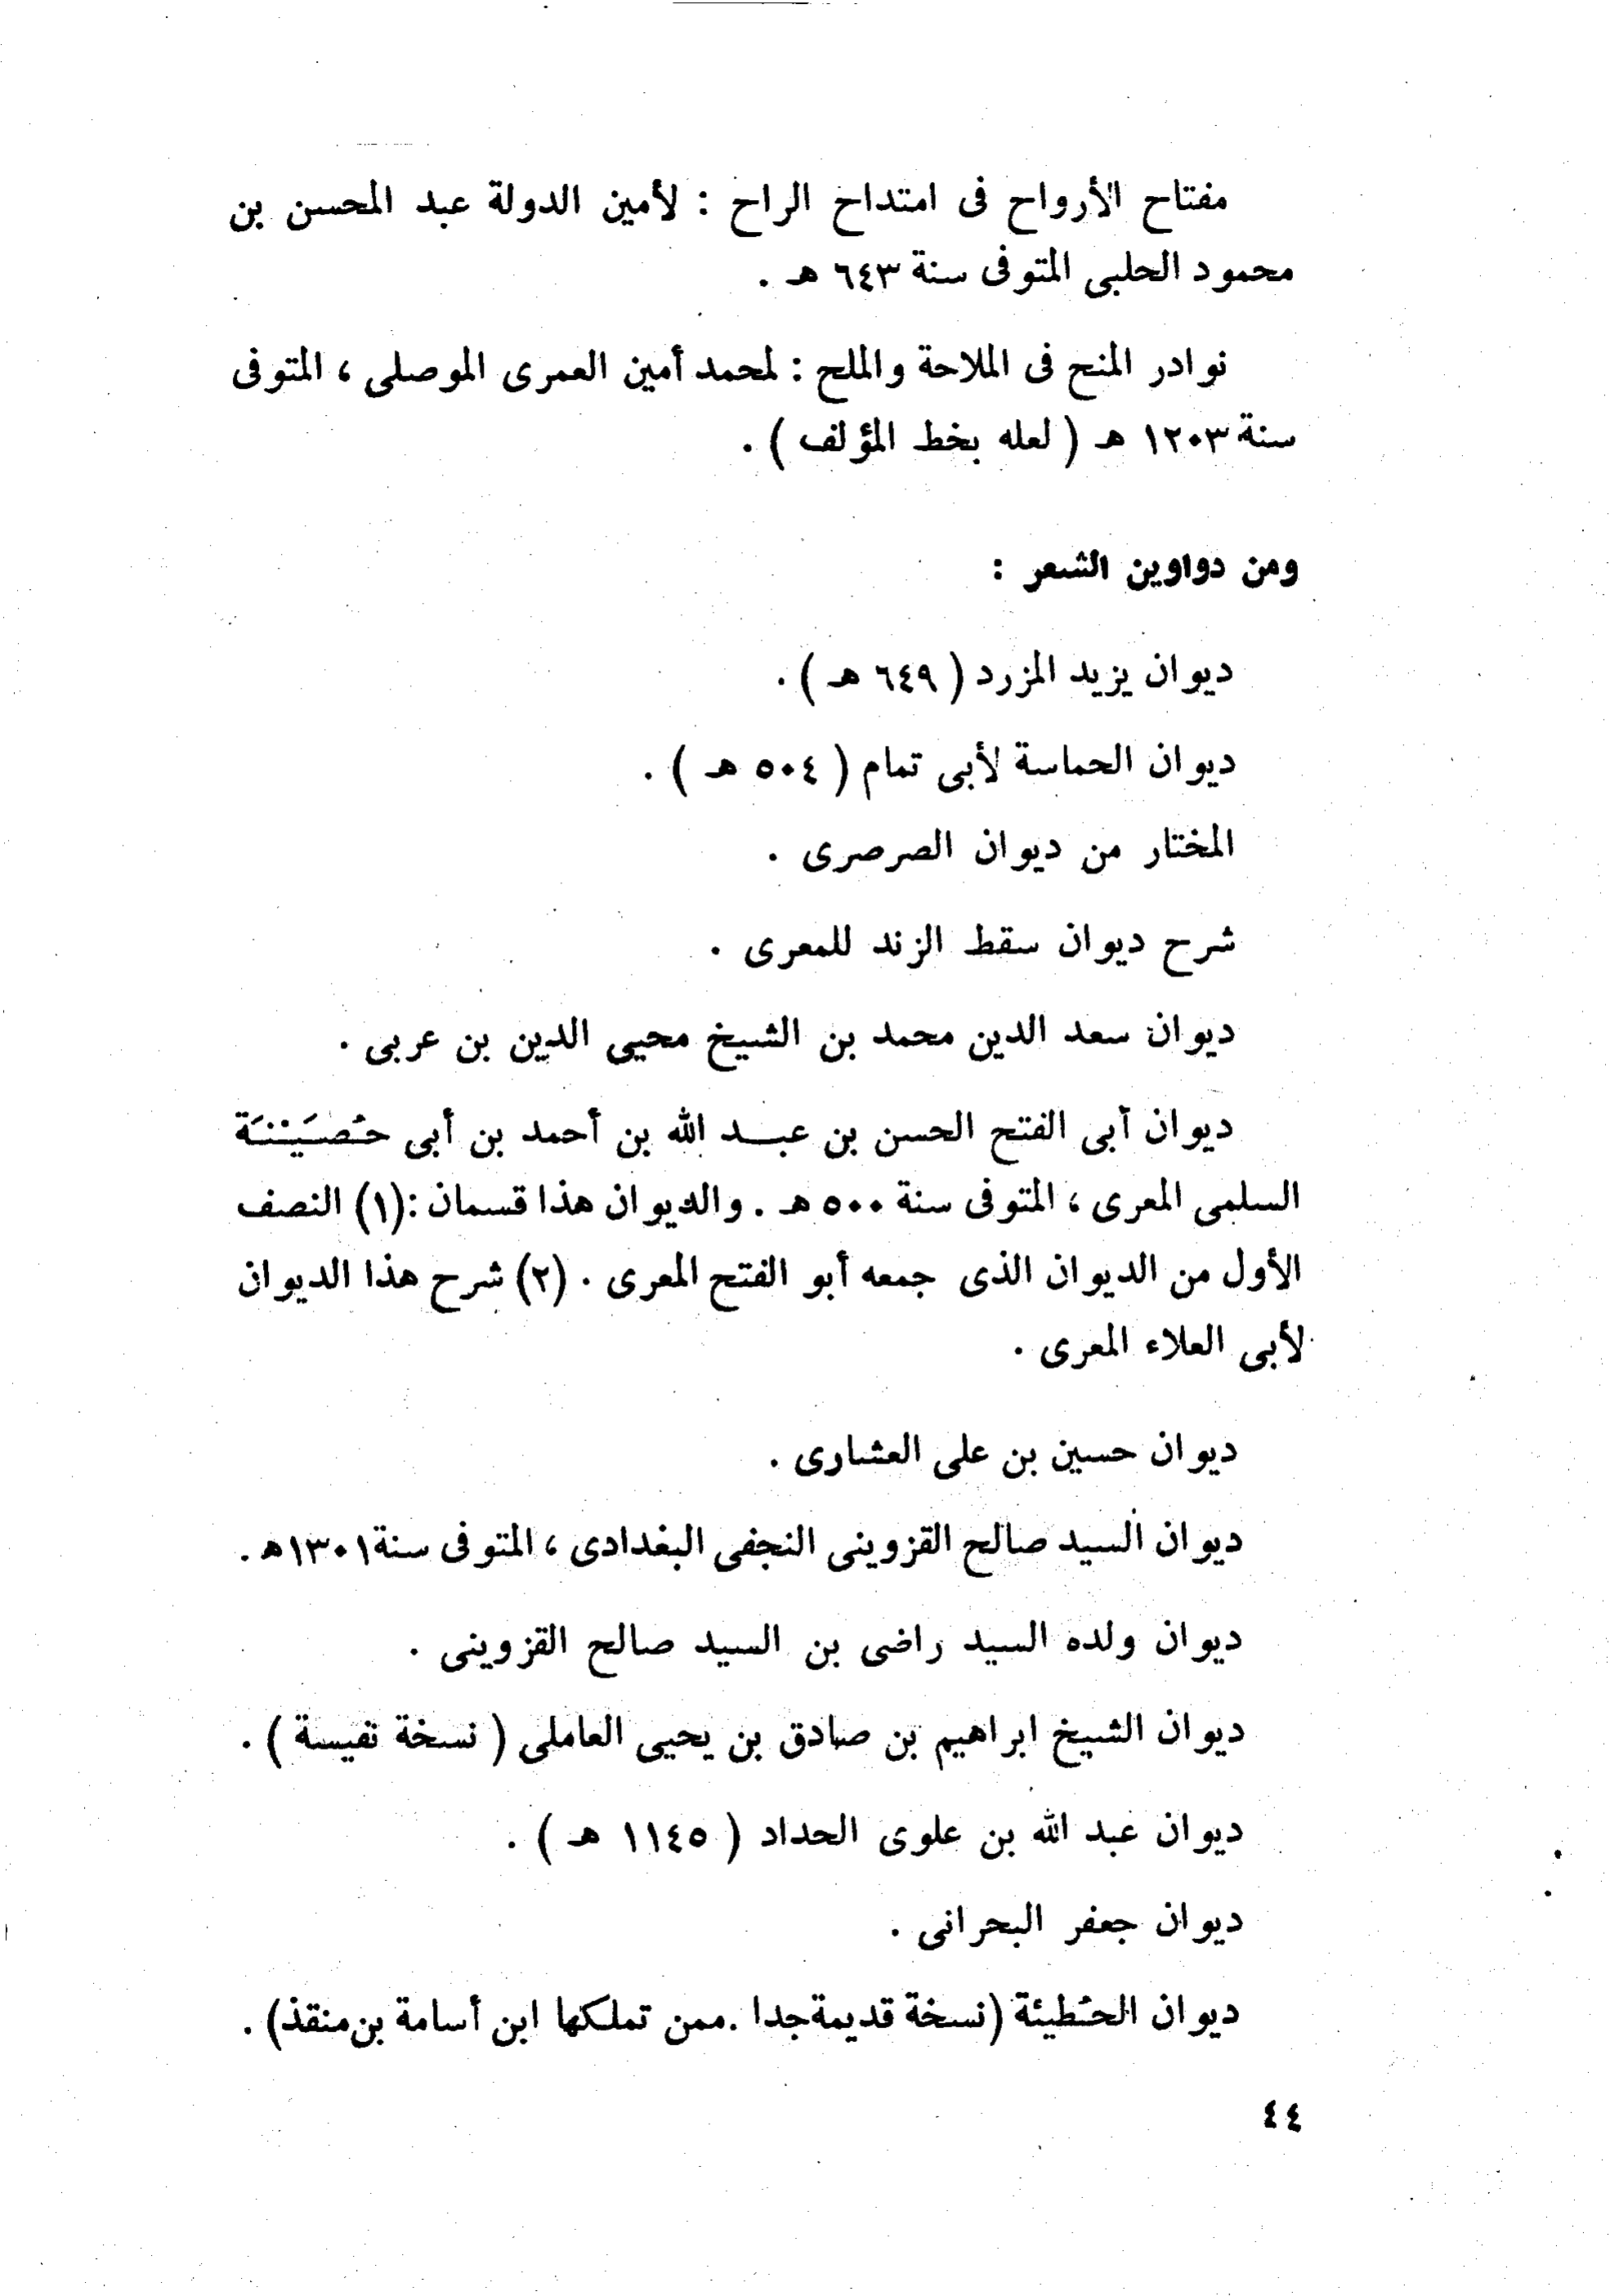 مفتاح الأرواح فى امتداح الراح : لأمين الدولة عبد المحسن بن
محمود الحلبى المتوفى سنة ٦٤٣ هـ .
نوادر المنح فى الملاحة والملح : لمحمد أمين العمرى الموصلى ، المتوفى
سنة ١٢٠٣ هـ ( لعله بخط المؤلف ) .
ومن دواوين الشعر :
ديوان يزيد المزرد ( ٦٤٩ هـ ) .
ديوان الحماسة لأبى تمام ( ٥٠٤ هـ ) .
المختار من ديوان الصرصرى .
شرح ديوان سقط الزند للمعرى .
ديوان سعد الدين محمد بن الشيخ محيى الدين بن عربى .
ديوان أبى الفتح الحسن بن عبـــد الله بن أحمد بن أبى حُصَيْنَة
السلمى المعرى ، المتوفى سنة ٥٠٠ هـ . والديوان هذا قسمان : (١) النصف
الأول من الديوان الذى جمعه أبو الفتح المعرى . (٢) شرح هذا الديوان
لأبى العلاء المعرى .
ديوان حسين بن على العشارى .
ديوان السيد صالح القزوينى النجفى البغدادى ، المتوفى سنة ١٣٠١ هـ .
ديوان ولده السيد راضى بن السيد صالح القزوينى .
ديوان الشيخ ابراهيم بن صادق بن يحيى العاملى ( نسخة نفيسة ) .
ديوان عبد الله بن علوى الحداد ( ١١٤٥ هـ ) .
ديوان جعفر البحرانى .
ديوان الحُطيئة (نسخة قديمة جدا . ممن تملكها ابن أسامة بن منقذ) .
٤٤